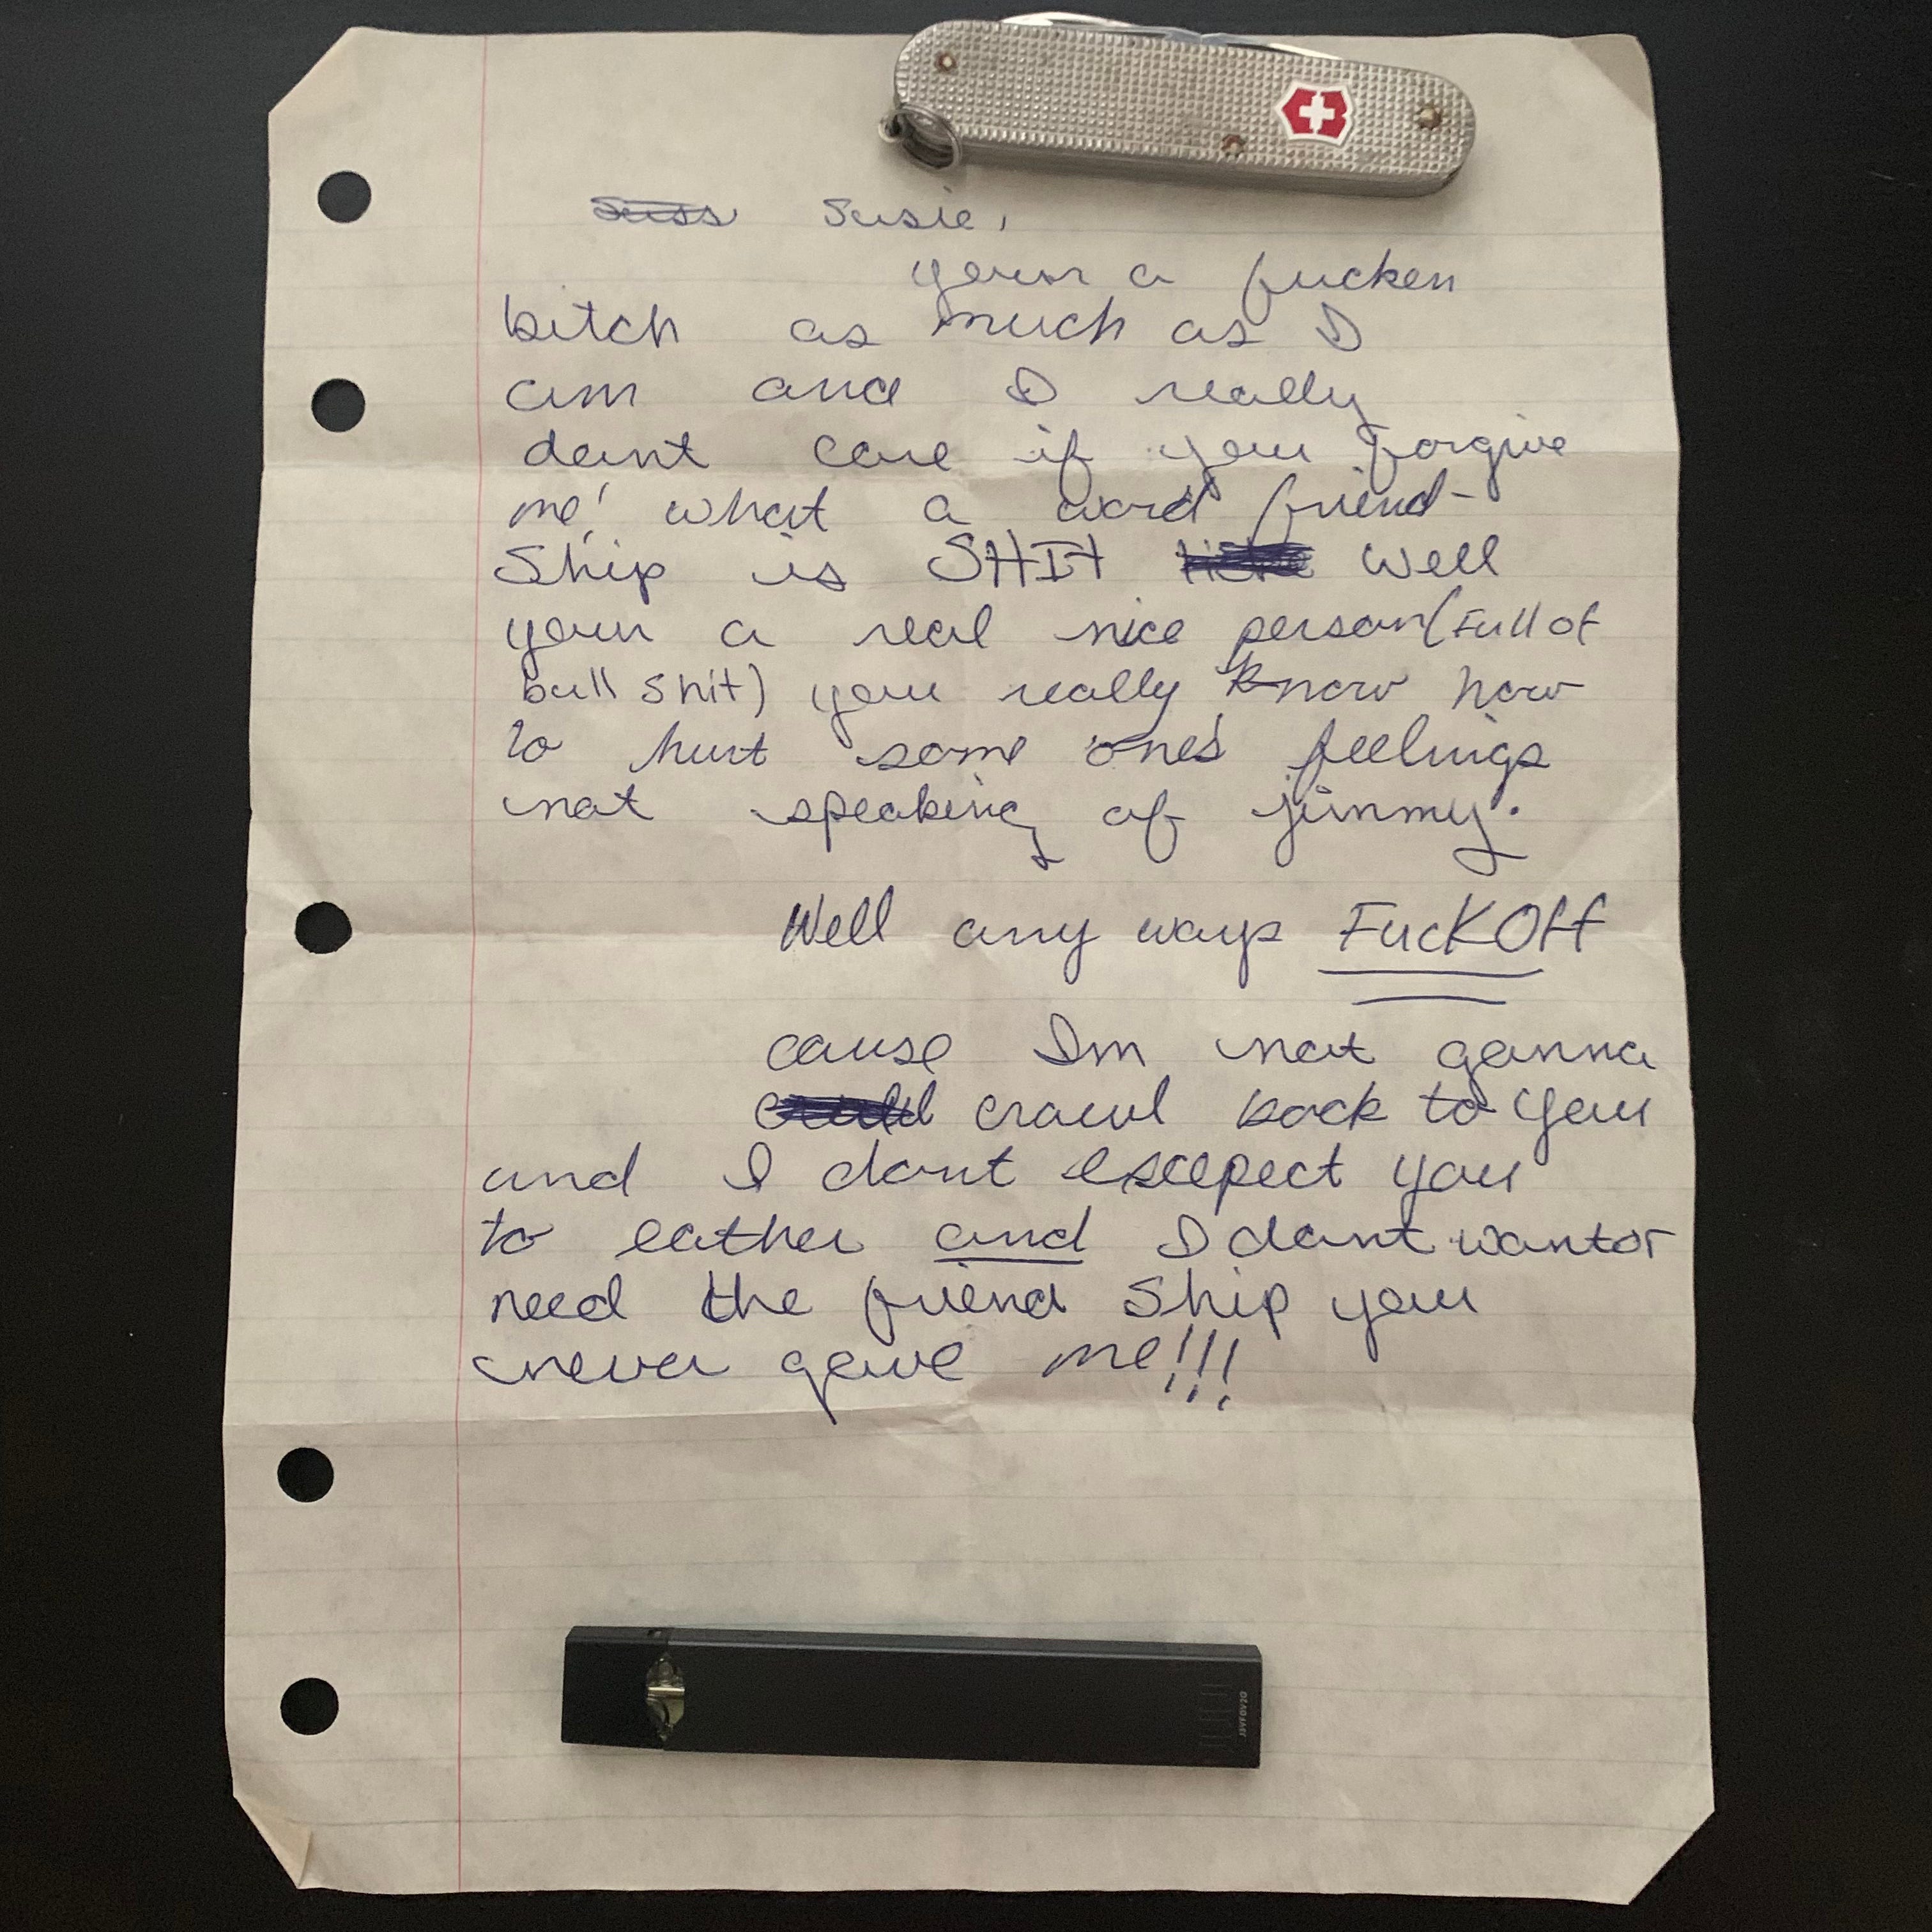 Suss Susie,
your a fucken
bitch as much as I
am and I really
dont care if you forgive
me! what a word friend-
Ship is SHIT well
your a real nice person (Full of
bull shit) you really know how
to hurt some ones feelings
not speaking of jimmy.
Well any ways FuckOff
cause Im not gonna
crawl back to you
and I dont escepect you
to eather and I dont want or
need the friend Ship you
never gave me!!!